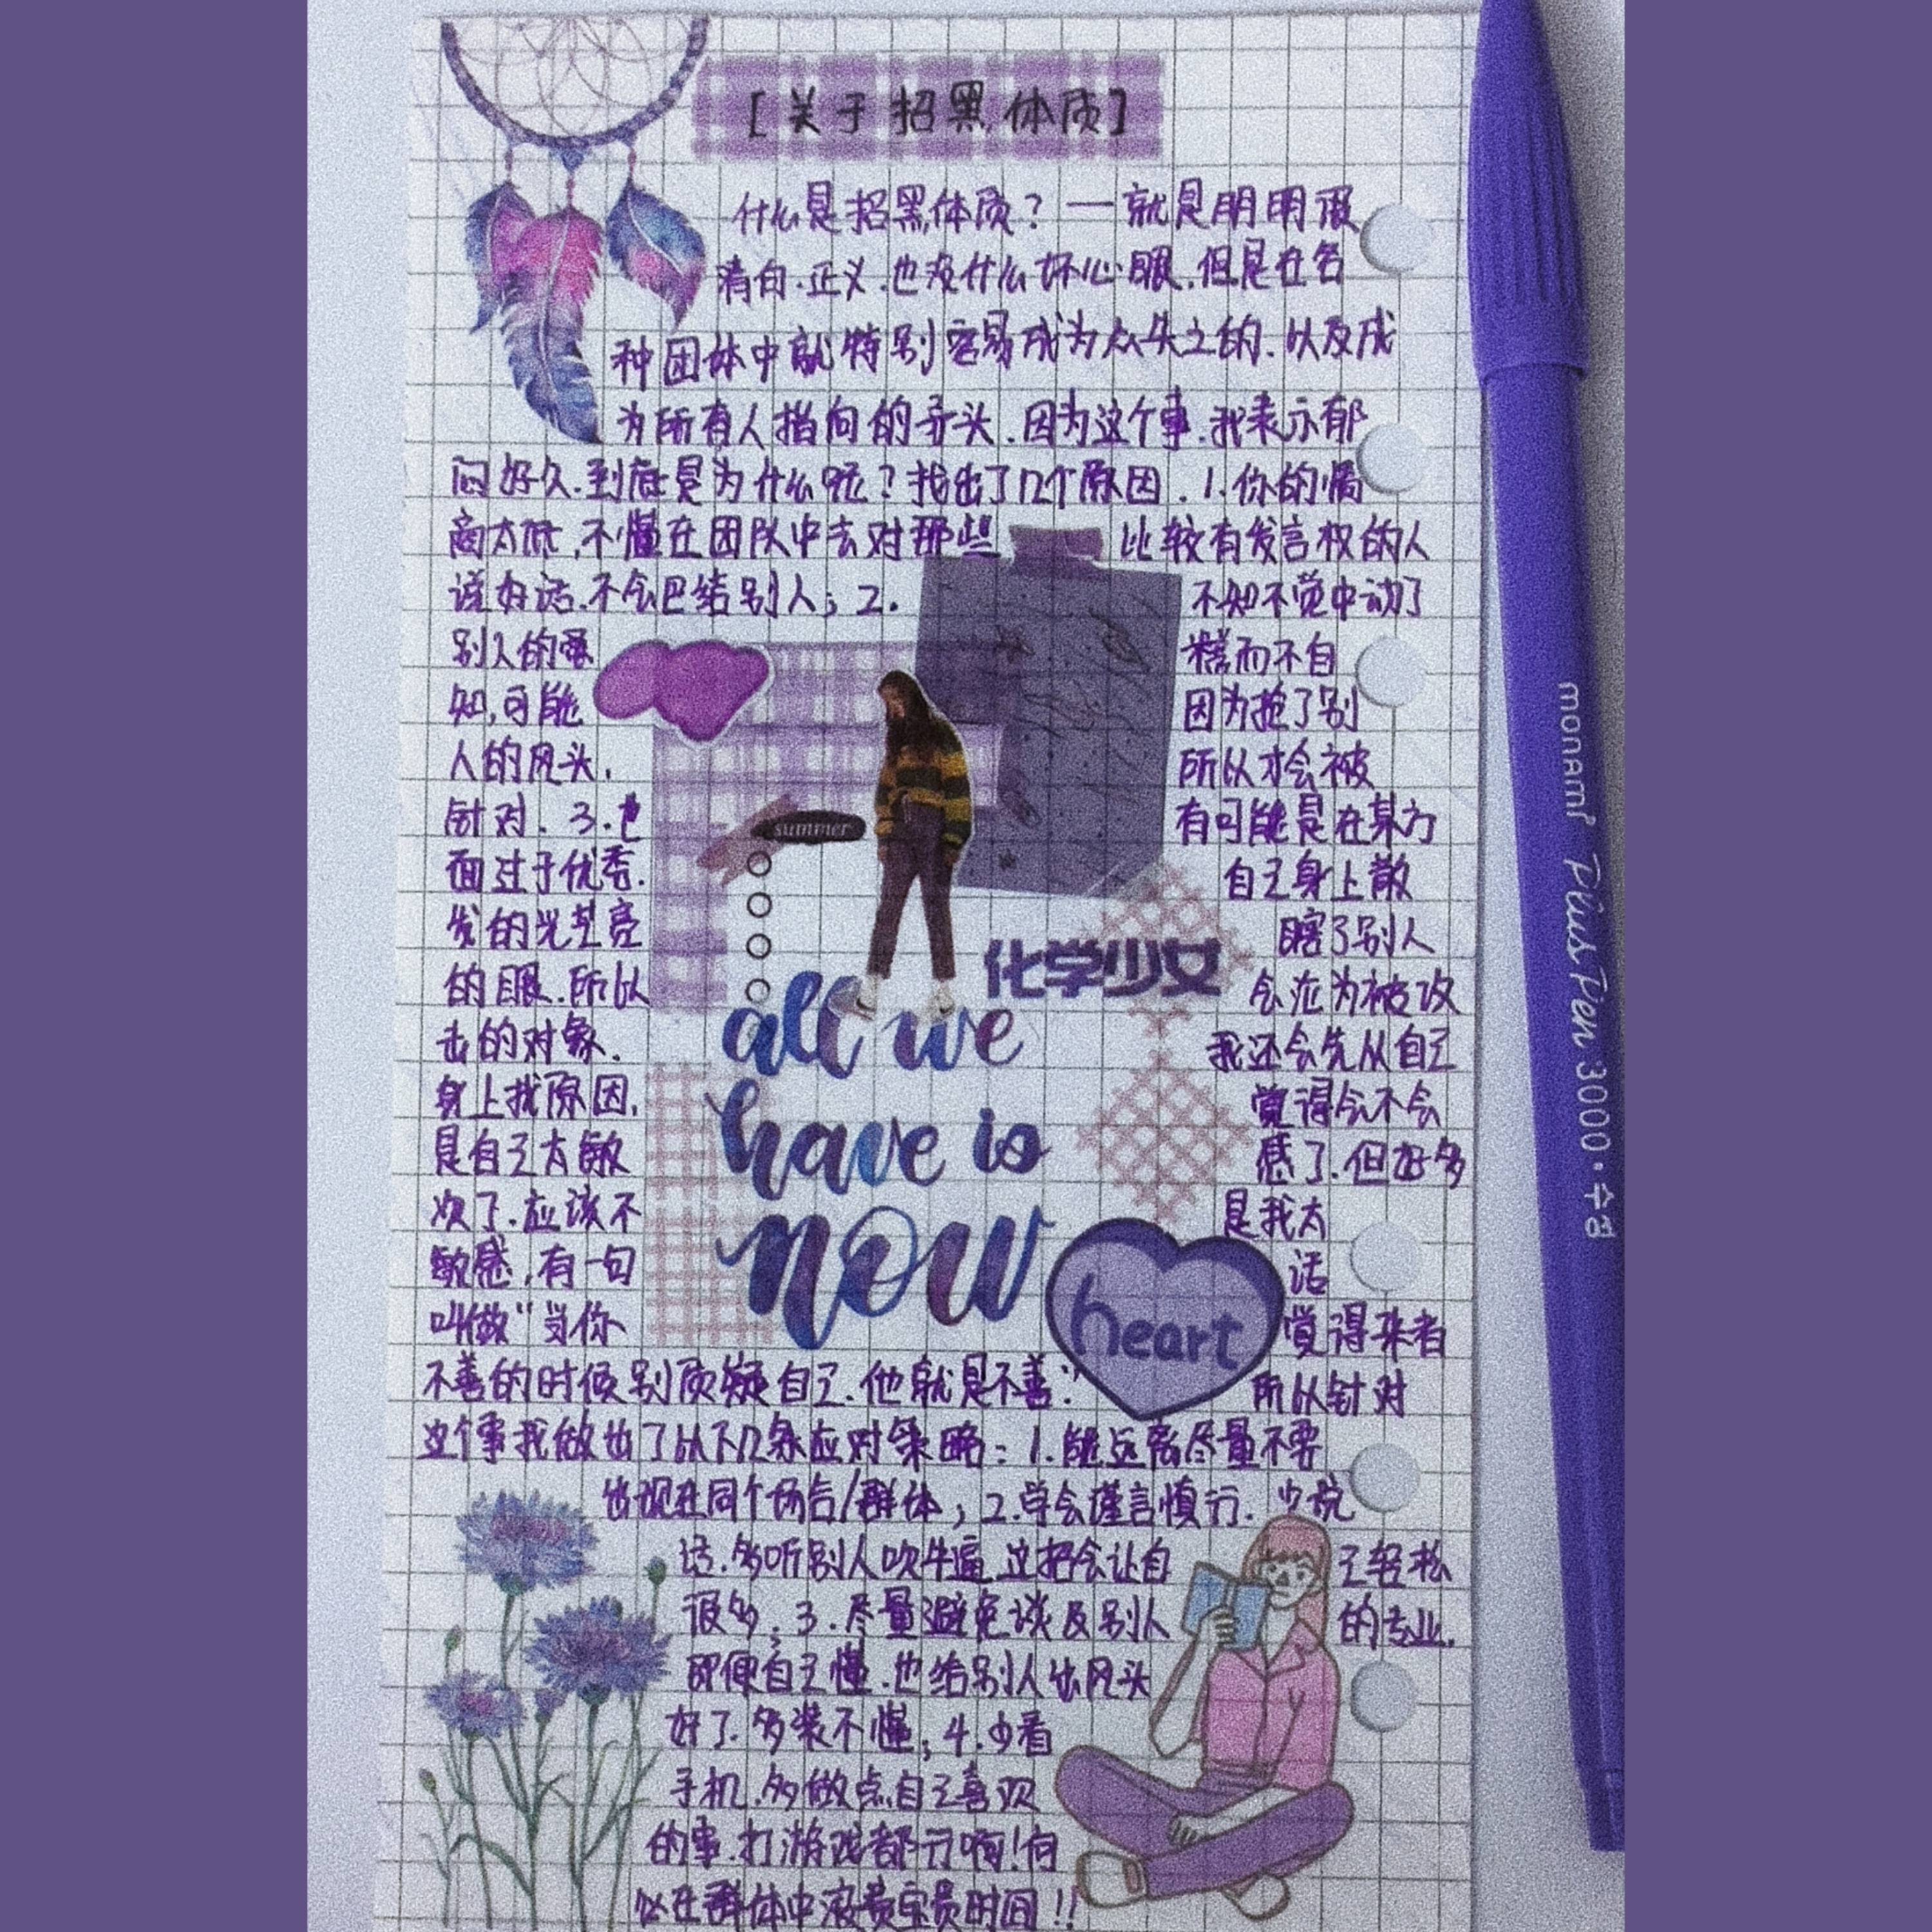 [关于招黑体质]
什么是招黑体质?一就是明明很
清白.正义.也没什么坏心眼.但是在各
种团体中就特别容易成为众矢之的.以及成
为所有人指向的矛头.因为这个事.我表示郁
闷好久.到底是为什么呢?找出了几个原因.1.你的情
商太低,不懂在团队中去对那些 比较有发言权的人
说好话.不会巴结别人;2. 不知不觉中动了
别人的蛋 糕而不自
知,可能 因为抢了别
人的风头. 所以才会被
针对.3.也 有可能是在某方
面过于优秀. 自己身上散
发的光芒亮 瞎了别人
的眼.所以 会沦为被攻
击的对象. 我还会先从自己
身上找原因, 觉得会不会
是自己太敏 感了.但好多
次了.应该不 是我太
敏感,有一句 话
叫做“当你 觉得来者
不善的时候别质疑自己.他就是不善” 所以针对
这个事我做出了以下几条应对策略:1.能远离尽量不要
出现在同个场合/群体;2.学会谨言慎行.少说
话.多听别人吹牛逼.这把会让自 己轻松
很多;3.尽量避免谈及别人 的专业.
即便自己懂.也给别人出风头
好了.多装不懂;4.少看
手机.多做点自己喜欢
的事.打游戏都行啊!何
必在群体中浪费宝贵时间!!
summer
化学少女
all we
have is
now
heart
monami Plus Pen 3000·수성